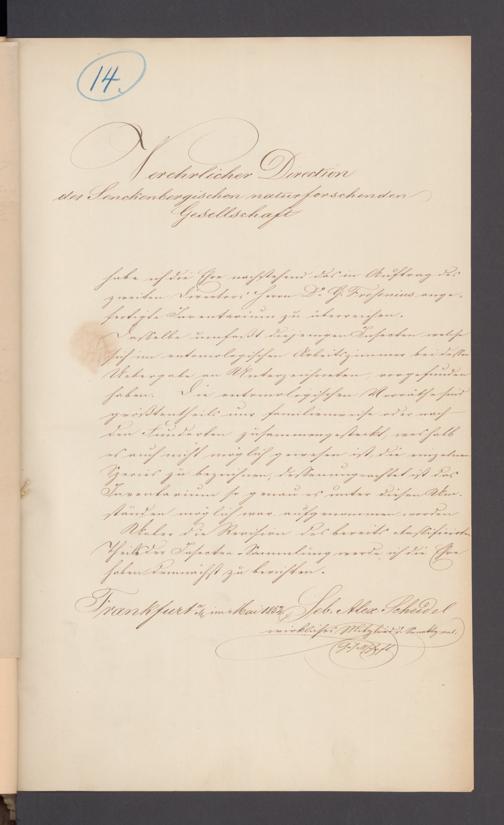 14.
Verehrlicher Direction
der Senckenbergischen naturforschenden
Gesellschaft
habe ich die Ehre nachstehend das im Auftrag des
zweiten Directors Herrn Dr. G. Fresenius ange-
fertigte Inventarium zu überreichen.
Dasselbe umfaßt diejenigen Insecten welche
sich im entomologischen Arbeitszimmer bei dessen
Uebergabe an Unterzeichneten, vorgefunden
haben. Die entomologischen Vorräthe sind
größtentheils nur familienweise oder nach
den Fundorten zusammengesteckt, weshalb
es auch nicht möglich gewesen ist die einzelnen
Species zu bezeichnen, dessenungeachtet ist das
Inventarium so genau es unter diesen Um-
ständen möglich war aufgenommen worden
Ueber die Revision des bereits classificirten
Theils der Insecten-Sammlung werde ich die Ehre
haben demnächst zu berichten.
Frankfurt im Mai Seb. Alex. Scheidel
wirkliches Mitglied